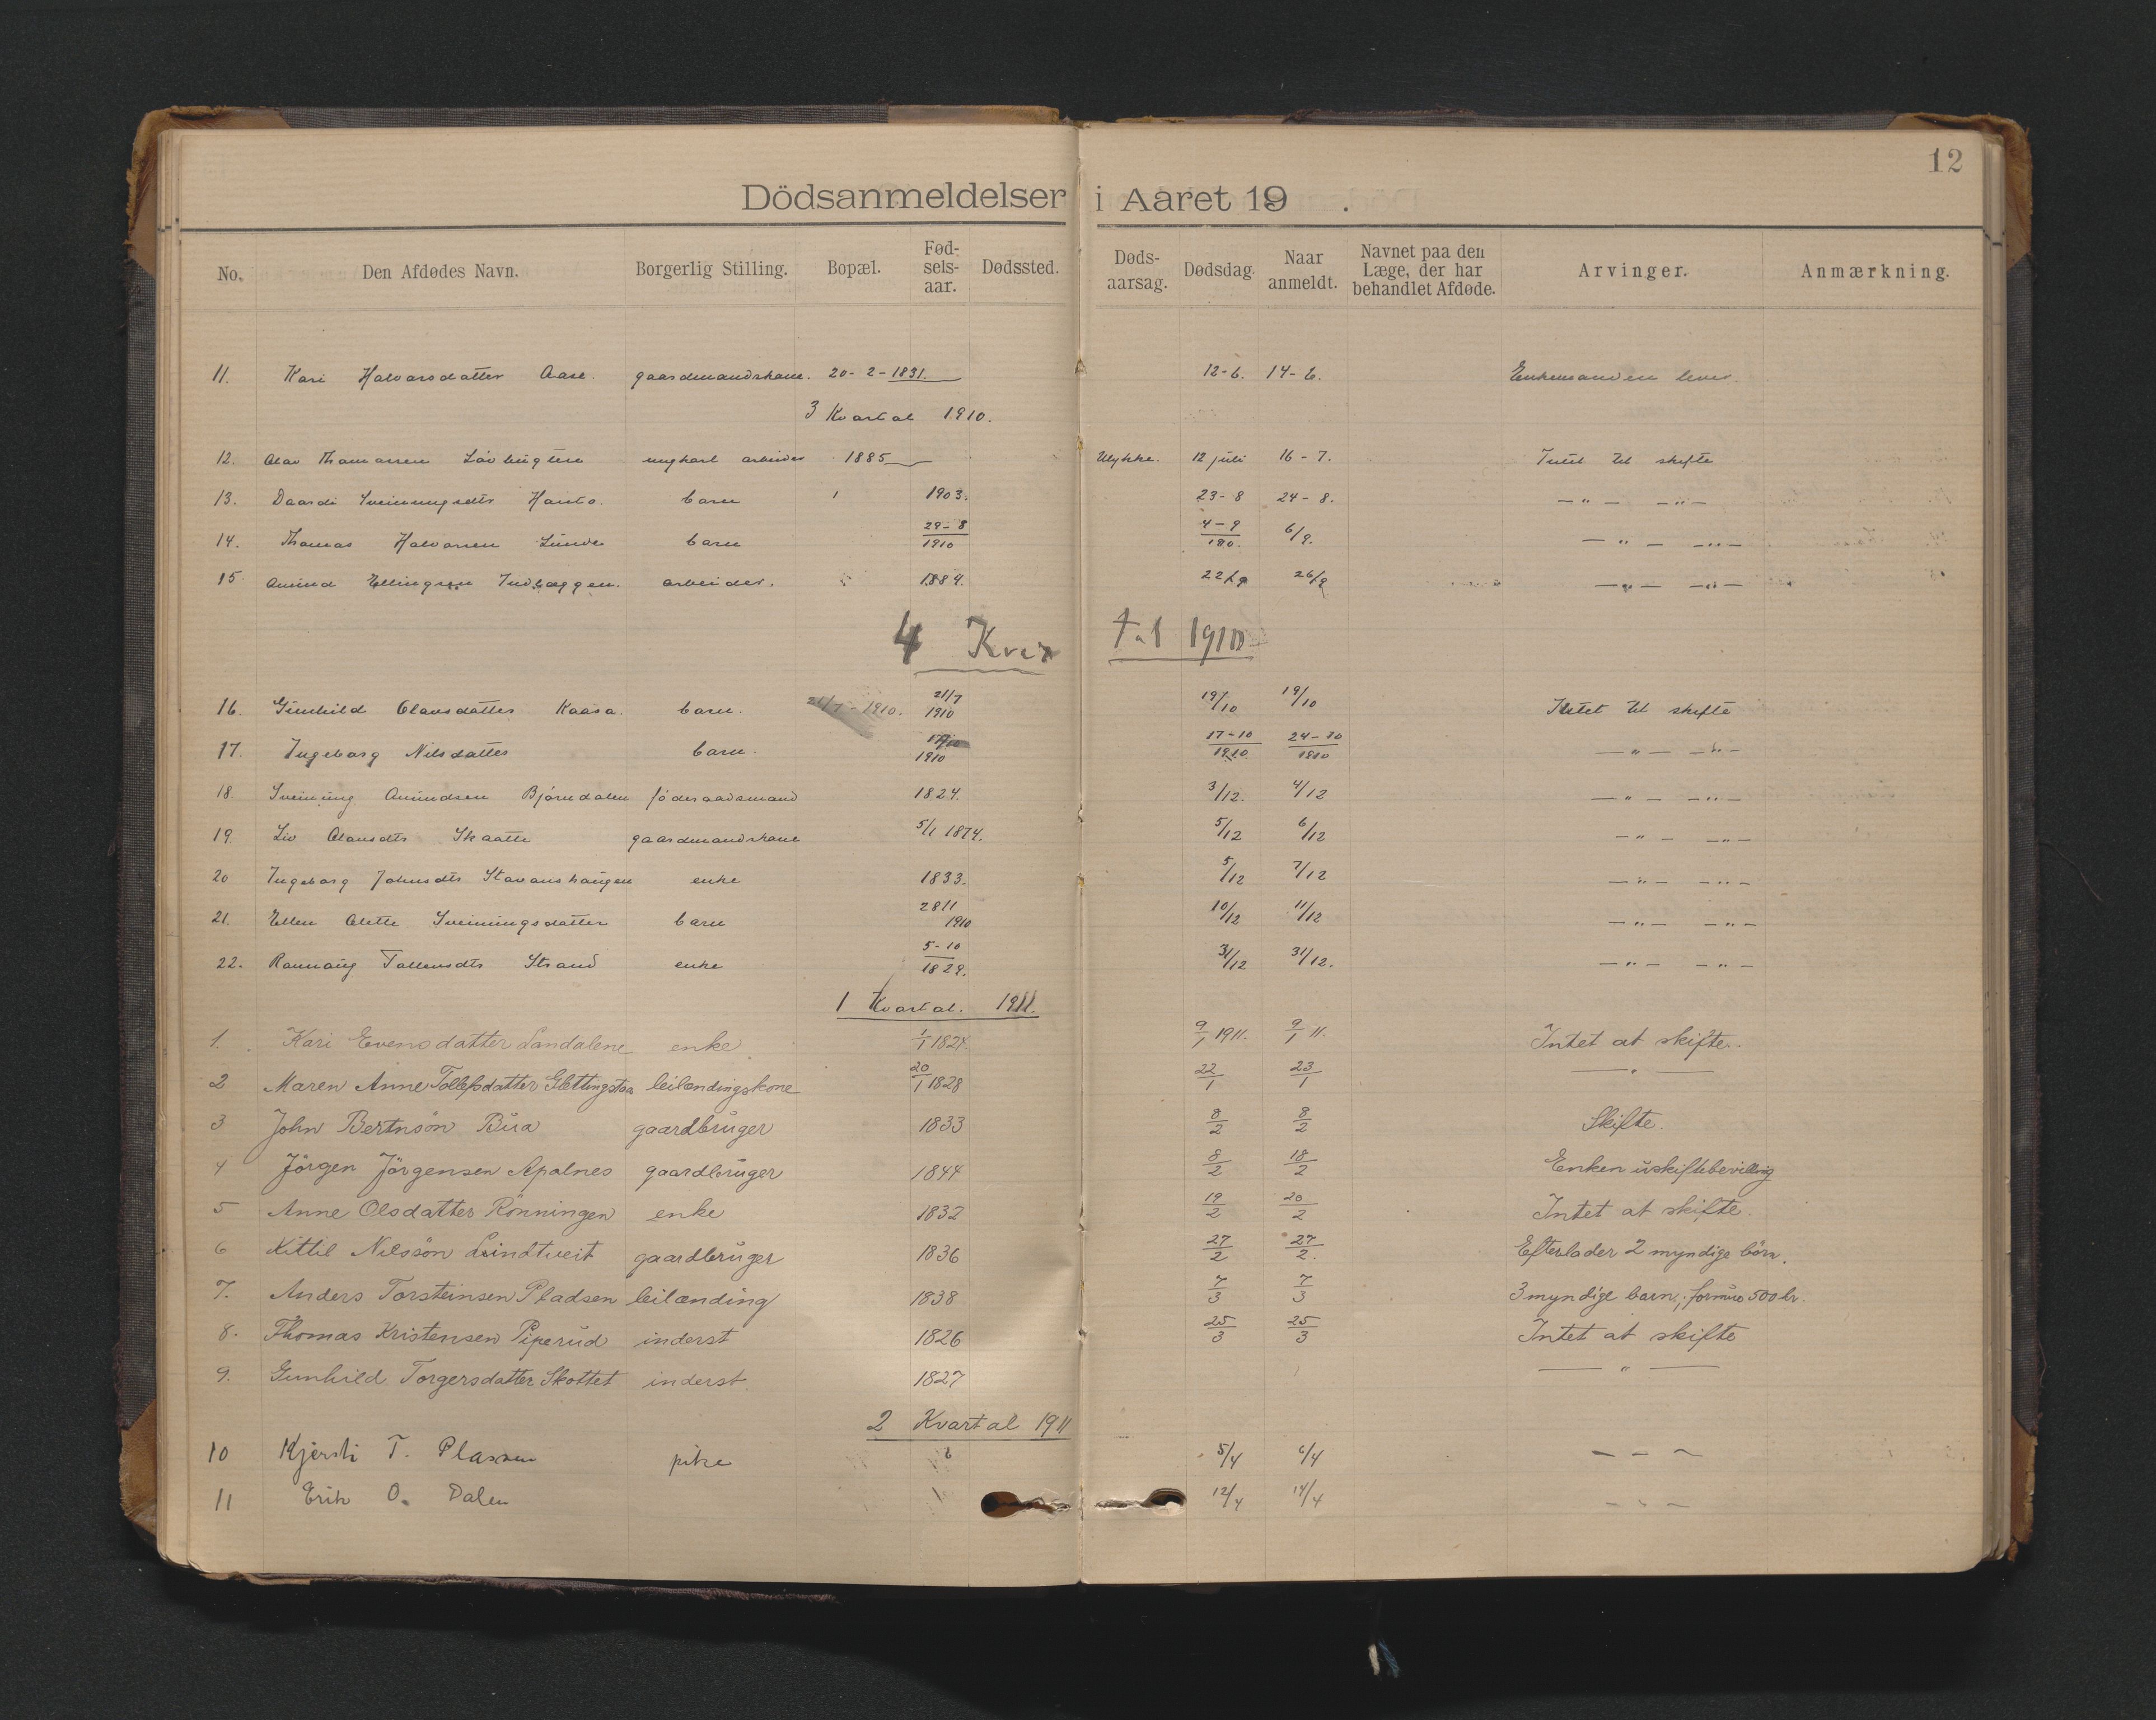 12
Dödsanmeldelser i Aaret 19 .
No. Den Afdødes Navn. Borgerlig Stilling. Bopæl. Fød-sels-aar. Dødssted. Døds-aarsag. Dødsdag. Naar anmeldt. Navnet paa den Læge, der har behandlet Afdøde. Arvinger. Anmærkning.
11. Kari Halvorsdatter Aase. gaardmandskone. 20-2-1831. 12-6. 14-6. Enkemanden lever.
3 Kvartal 1910.
12. Olav Thomassen ungkarl arbeider 1885 Ulykke. 12 juli 16-7. Intet til skifte
13. Sveinungsdtr Hanto. barn 1903. 23-8 24-8. -"- -"-
14. Thomas Halvorsen Lunde barn 29-8 1910 4-9 1910. 6/9. -"- -"-
15 Amund Ellingsen arbeider. 1884. 22/9 26/9 -"- -"-
4 Kvartal 1910
16. Gunhild Olavsdatter Kaasa. barn. 21/7-1910. 21/7 1910 19/10 19/10 Intet til skifte
17. Ingeborg Nilsdatter barn. 17/10 1910 17-10 1910 24-10 1910 -"- -"-
18. Sveinung Amundsen Bjørndalen föderaadsmand 1824. 3/12. 4/12 -"- -"-
19. Liv Olavsdtr Skaatte gaardmandskone 5/1 1874. 5/12 6/12 -"- -"-
20 Ingeborg Johnsdtr Stavanshaugen enke 1833. 5/12 7/12 -"- -"-
21. Ellen Olette Sveinungsdatter barn 28 11 1910 10/12 11/12 -"- -"-
22. Rannaug Tallevsdtr Strand enke 5-10 1829. 31/12 31/12. -"- -"-
1 Kvartal. 1911.
1. Kari Evensdatter Landalene enke 1/1 1824. 9/1 1911. 9/1 11. Intet at skifte.
2 Maren Anne Tollefsdatter leilændingskone 20/1 1828 22/1 23/1 -"-
3 John Bertnsön Bua gaardbruger 1833 8/2 8/2 Skifte.
4 Jörgen Jörgensen Apalnes gaardbruger 1844 8/2 18/2 Enken uskiftebevilling
5 Anne Olsdatter Rönningen enke 1832 19/2 20/2 Intet at skifte.
6 Kittil Nilssön Lindtveit gaardbruger 1836 27/2 27/2. Efterlader 2 myndige börn.
7. Anders Torsteinsen Pladsen leilænding 1838 7/3 7/3 3 myndige barn; formue 500 kr.
8. Thomas Kristensen Piperud inderst 1826 25/3 25/3 Intet at skifte
9. Gunhild Torgersdatter Skottet inderst 1827 -"-
2 Kvartal 1911
10 Kjersti T. Plassen pike 5/4 6/4 - - -
11 Erik O. Dalen 12/4 14/4 - " -